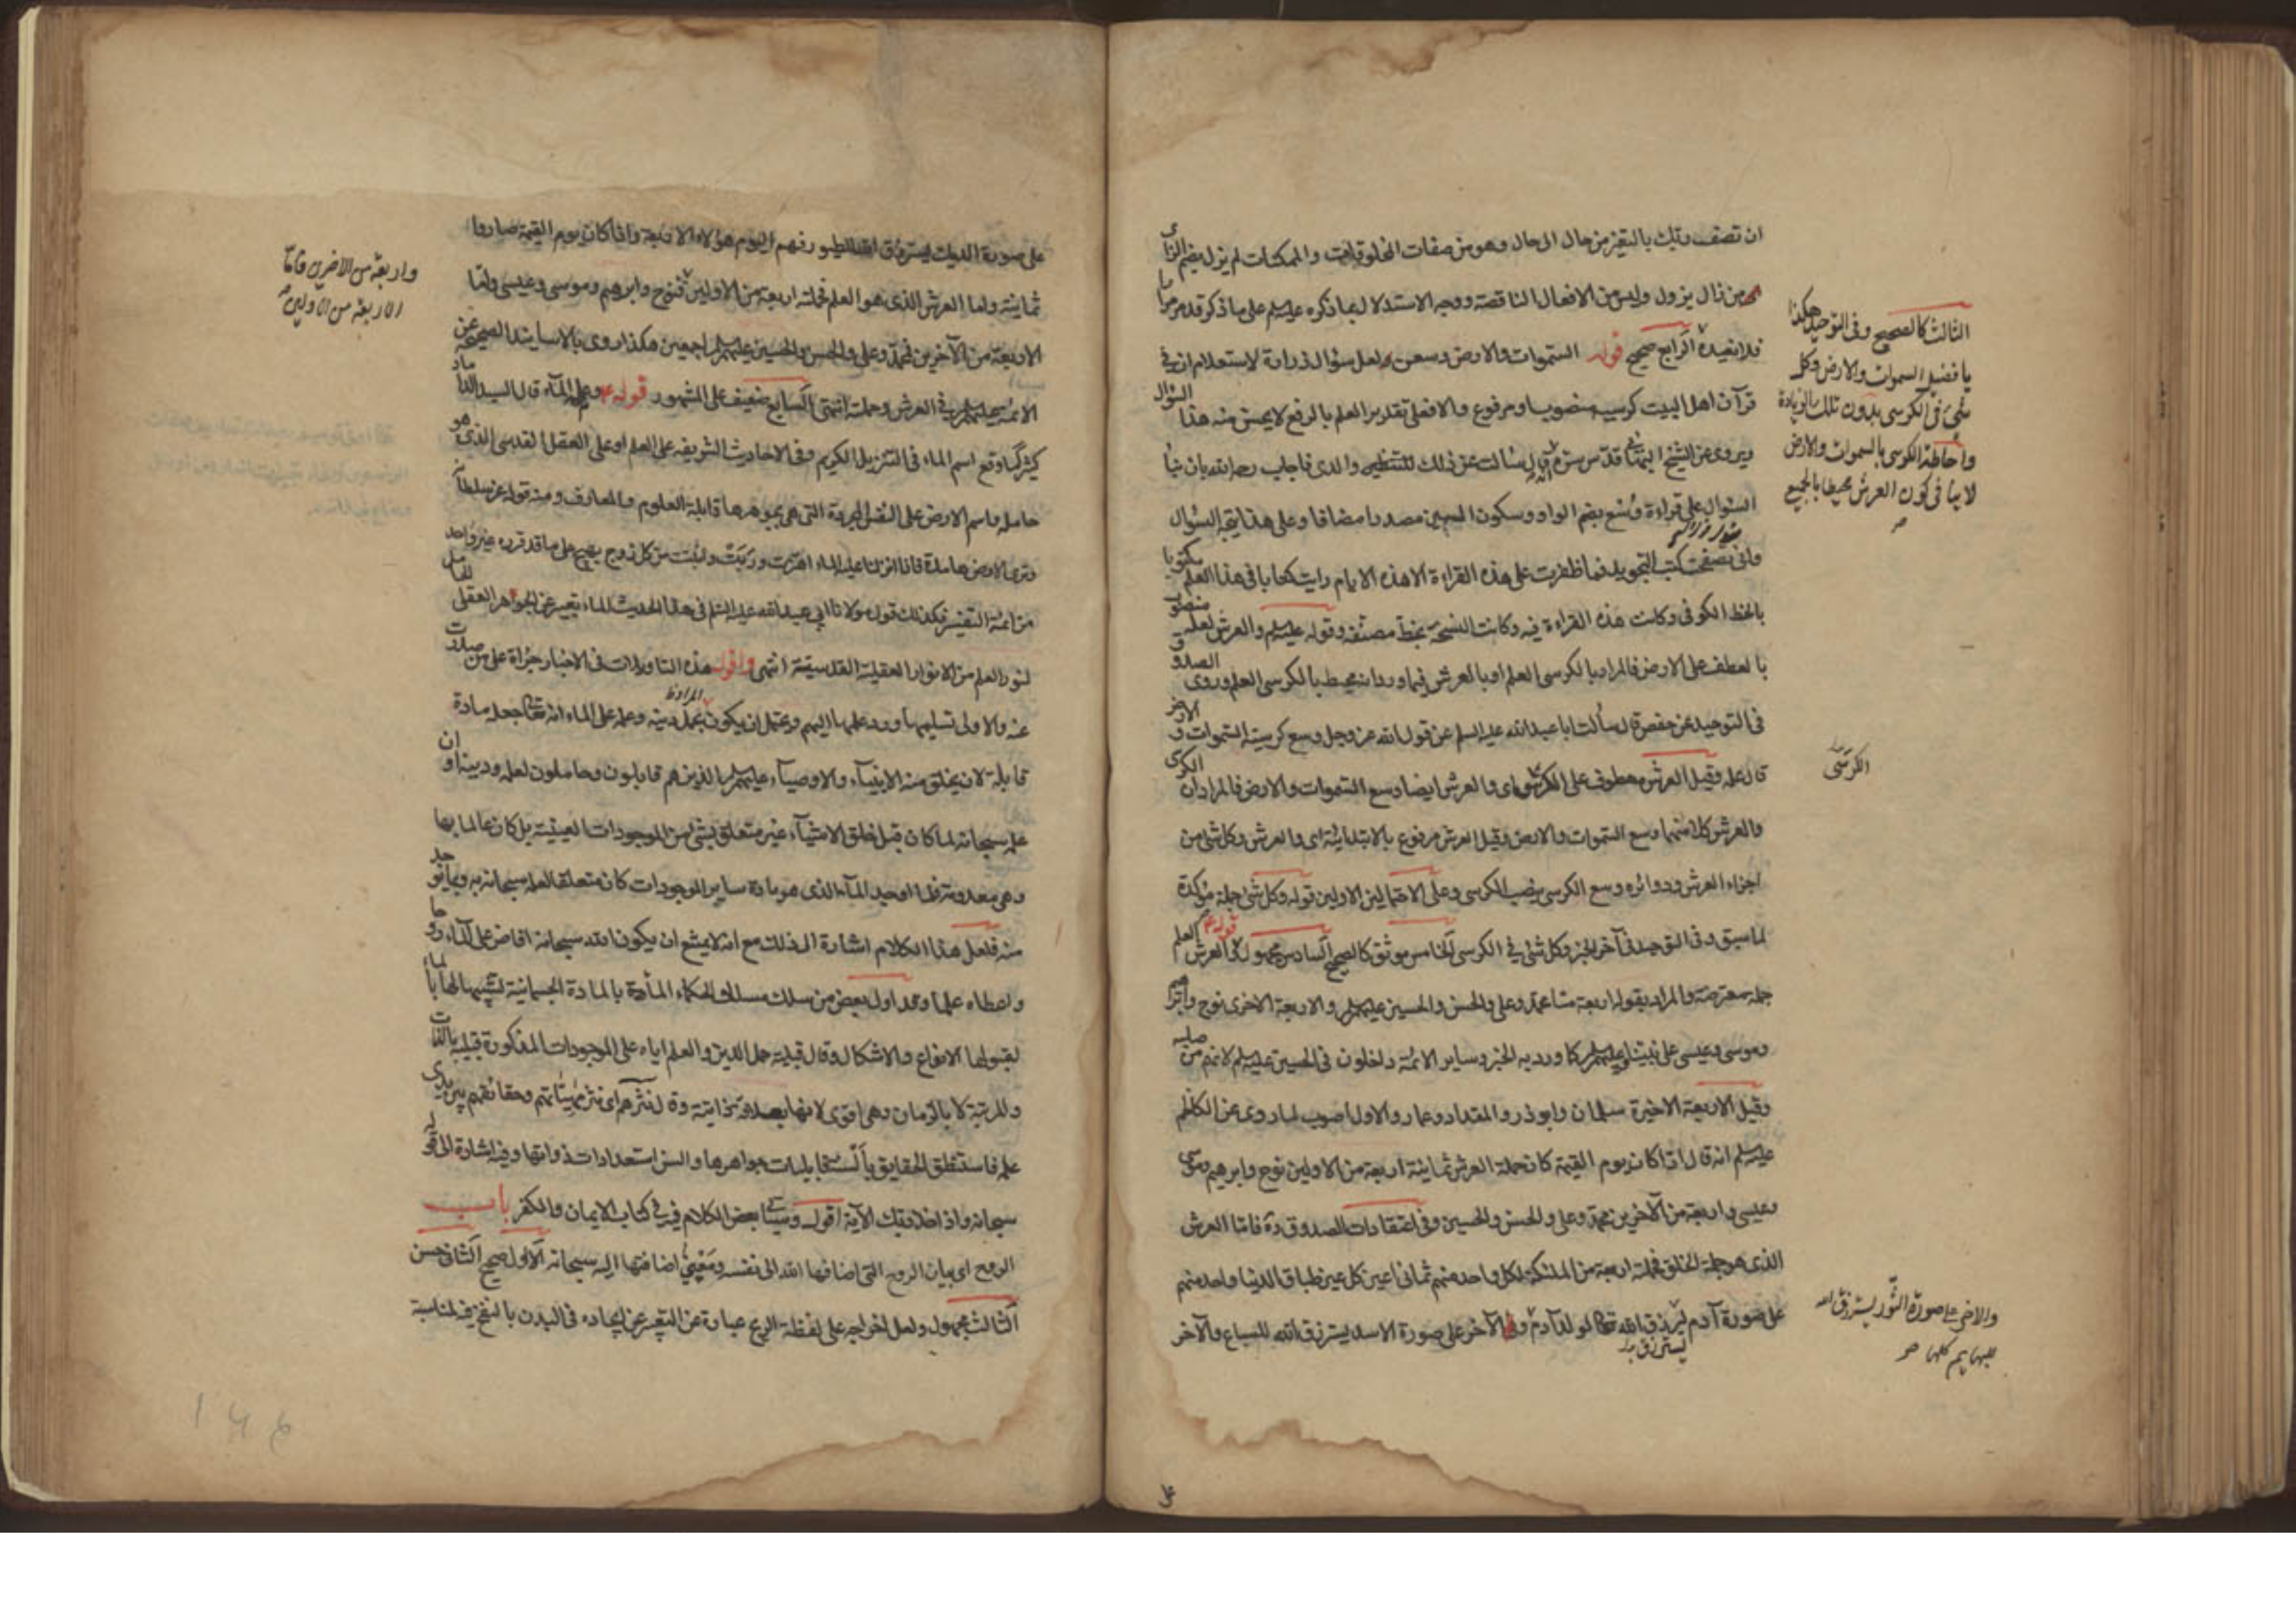 ان تصف ربك بالتغير من حال الى حال وهو من صفات المخلوقات والممكنات لم يزل بضم الزاى
من زال يزول وليس من الافعال الناقصة ووجه الاستدلال بما ذكره عليه السلم على ما ذكر قد مر مرارا
فلا نعيده الرابع صحيح قوله السموات والارض وسعن لعل سؤال زرارة لاستعلام ان في
قرآن اهل البيت كرسيه منصوب او مرفوع والا فعلى تقدير العلم بالرفع لا يحسن منه هذا السؤال
ويروى عن الشيخ البهائى قدس سره قال سالت عن ذلك والدى فاجاب رحمه الله بان بناء
السؤال على قراءة وسع بضم الواو وسكون السين مصدرا مضافا وعلى هذا يتجه السؤال
وانى تصفحت كتب التجويد فما ظفرت على هذه القراءة الا هذه الايام رايت كتابا في هذا العلم مكتوبا
بالخط الكوفى وكانت هذه القراءة فيه وكانت النسخة بخط مصنفه وقوله عليه السلم والعرش لعله منصوب
بالعطف على الارض فالمراد بالكرسى العلم او بالعرش فيما ورد انه محيط بالكرسى العلم وروى الصدوق
فى التوحيد عن حفص قال سألت ابا عبد الله عليه السلم عن قول الله عز وجل وسع كرسيه السموات والارض
قال علمه وقيل العرش معطوف على الكرسى اى والعرش ايضا وسع السموات والارض فالمراد ان الكرسى
والعرش كلا منهما وسع السموات والارض وقيل العرش مرفوع بالابتدائية اى والعرش وكل شئ من
اجزاء العرش ودوائره وسع الكرسى بنصب الكرسى وعلى الاحتمالين الاولين قوله وكل شئ جملة مؤكدة
لما سبق وفى التوحيد فى آخر الخبر وكل شئ في الكرسى الخامس موثق كالصحيح السادس مجهول قوله والعرش العلم
جملة معترضة والمراد بقوله اربعة منا محمد وعلى والحسن والحسين عليهم السلم والاربعة الاخرى نوح وابراهيم
وموسى وعيسى على نبينا وعليهم السلم كما ورد به الخبر وساير الائمة داخلون فى الحسين عليه السلم لانهم من صلبه
وقيل الاربعة الاخيرة سلمان وابو ذر والمقداد وعمار والاول اصوب لما روى عن الكاظم
عليه السلم انه قال اذا كان يوم القيمة كان حملة العرش ثمانية اربعة من الاولين نوح وابرهيم وموسى
وعيسى واربعة من الآخرين محمد وعلى والحسن والحسين وفى اعتقادات الصدوق ره فاما العرش
الذى هو جملة الخلق فحملته اربعة من الملئكة لكل واحد منهم ثمانى اعين كل عين طباق الدنيا واحد منهم
على صورة آدم يسترزق الله تعالى لولد آدم والآخر على صورة الاسد يسترزق الله للسباع والآخر
الثالث كالصحيح وفى التوحيد هكذا
يا فضيل السموات والارض وكل
شئ فى الكرسى بدون تلك الزيادة
واحاطة الكرسى بالسموات والارض
لا ينافى كون العرش محيطا بالجميع
الكرسى
والاخر على صورة الثور يسترزق الله
للبهايم كلها
على صورة الديك يسترزق الله للطيور فهم اليوم هؤلاء الاربعة واذا كان يوم القيمة صاروا
ثمانية واما العرش الذى هو العلم فحملته اربعة من الاولين فنوح وابرهيم وموسى وعيسى واما
الاربعة من الآخرين فمحمد وعلى والحسن والحسين عليهم السلم اجمعين هكذا روى بالاسانيد الصحيحة عن
الائمة عليهم السلم في العرش وحملته انتهى السابع ضعيف على المشهور قوله وعلى الماء قال السيد الداماد
كثيرا ما وقع اسم الماء فى التنزيل الكريم وفى الاحاديث الشريفة على العلم او على العقل القدسى الذى هو
حامله واسم الارض على النفس المجردة التى هى بجوهرها قابلة العلوم والمعارف ومنه قوله عز سلطانه
وترى الارض هامدة فاذا انزلنا عليها الماء اهتزت وربت وانبتت من كل زوج بهيج على ما قد قرره غير واحد
من ائمة التفسير فكذلك قول مولانا ابى عبد الله عليه السلم فى هذا الحديث الماء تعبير عن الجوهر العقلى الحامل
لنور العلم من الانوار العقلية القدسية انتهى واقول هذه التاويلات فى الاخبار جرأة على من صدرت
عنه والاولى تسليمها ورد علمها اليهم ويحتمل ان يكون المراد بحمل دينه وعلمه على الماء انه تعالى جعله مادة
قابلة لان يخلق منه الانبياء والاوصياء عليهم السلم الذين هم قابلون وحاملون لعلمه ودينه او ان
علمه سبحانه لما كان قبل خلق الاشياء غير متعلق بشئ من الموجودات العينية بل كان عالما بها
وهى معدومة فلما اوجد الماء الذى هو مادة ساير الموجودات كان متعلقا لعلمه سبحانه به وبما يوجد
منه فلعل هذا الكلام اشارة الى ذلك مع انه لا يمتنع ان يكون الله سبحانه افاض على الماء روحا
واعطاه علما وقد اول بعض من سلك مسالك الحكماء الماء بالمادة الجسمانية تشبيها لها بالماء
لقبولها الانواع والاشكال وقال قبلية حمل الدين والعلم اياه على الموجودات المذكورة قبلية بالذات
والمرتبة لا بالزمان وهى اقوى لانها بعلاقة ذاتية وقال نثرهم اى نثر مهياتهم وحقائقهم بين يدى
علمه فاستنطق الحقايق بألسنة قابليات جواهرها والسن استعدادات ذواتها وفيه اشارة الى قوله
سبحانه واذ اخذ ربك الآية اقول وسيأتى بعض الكلام فيه في كتاب الايمان والكفر باب
الروح اى بيان الروح التى اضافها الله الى نفسه ومعنى اضافتها اليه سبحانه الاول صحيح الثانى حسن
الثالث مجهول ولعل اخراجه على لفظة الريح عبارة عن التعبير عن ايجاده فى البدن بالنفخ فيه لمناسبة
واربعة من الآخرين فاما
الاربعة من الاولين